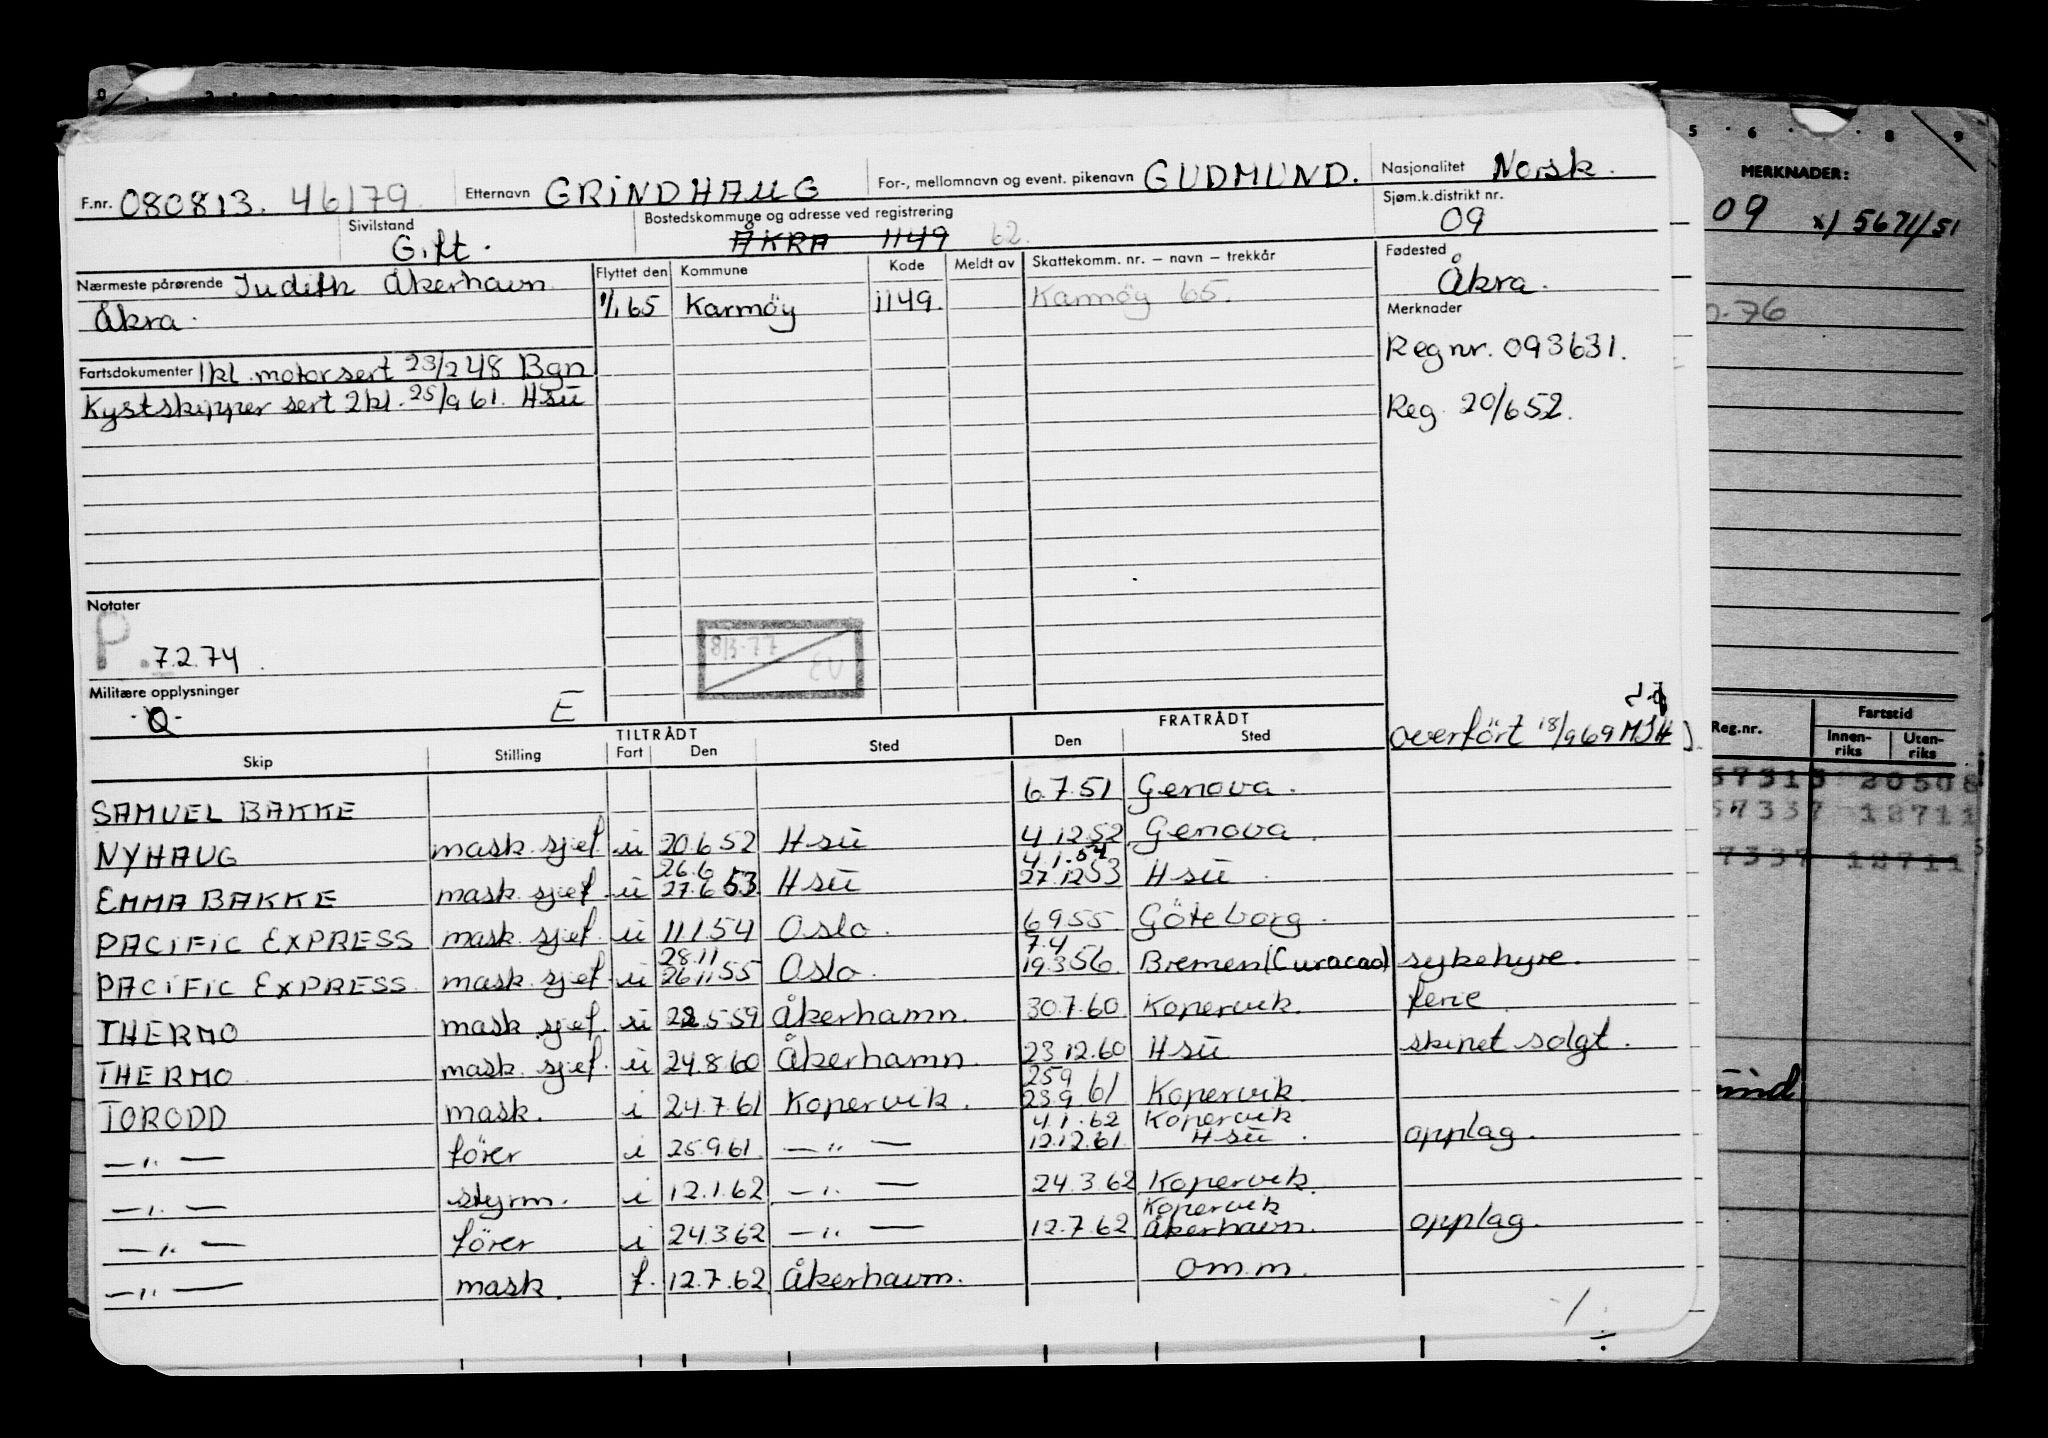 F.nr. 080813. 46179. Etternavn GRINDHAUG For-, mellomnavn og event. pikenavn GUDMUND. Nasjonalitet Norsk.
Sivilstand Gift. Bostedskommune og adresse ved registrering ÅKRA 1149 62. Sjøm.k.distrikt nr. 09
Nærmeste pårørende Judith Åkerhavn Flyttet den Kommune Kode Meldt av Skattekomm. nr. – navn – trekkår Fødested Åkra.
Åkra. 1/1 65 Karmöy 1149. Karmöy 65. Merknader
Fartsdokumenter 1kl. motorsert 23/2 48 Bgn Reg nr. 093631.
Kystskipper sert 2kl. 25/9 61. Hsü Reg. 20/6 52.
Notater
P. 7.2.74. 8/3-77 EU
Militære opplysninger E
TILTRÅDT FRATRÅDT overfört 18/9 69 MSH
Skip Stilling Fart Den Sted Den Sted
SAMUEL BAKKE 6.7.51 Genova.
NYHAUG mask.sjef u 20.6 52 Hsü 4.12.52 Genova.
26.6 4.1.54
EMMA BAKKE mask.sjef u 27.6 53 Hsü 27.12 53 Hsü.
PACIFIC EXPRESS mask.sjef. u 11.1.54 Oslo. 6 9 55 Göteborg.
28.11 7.4
PACIFIC EXPRESS mask.sjef u 26.11.55 Oslo. 19.3 56 Bremen (Curacao) sykehyre.
THERMO mask.sjef. u 22.5.59 Åkerhamn. 30.7.60 Kopervik. ferie
THERMO mask.sjef. u 24.8.60 Åkerhamn. 23.12.60 Hsü skipet solgt.
25 9
TORODD mask. i 24.7.61 Kopervik. 23.9 61 Kopervik.
4.1.62 Kopervik
—"— förer i 25.9.61 —"— 12.12.61. Hsü. opplag.
—"— styrm. i 12.1.62 —"— 24.3.62 Kopervik.
Kopervik
—"— förer i 24.3.62 —"— 12.7.62 Åkerhavn. opplag.
—"— mask. f. 12.7.62 Åkerhavn. omm.
MERKNADER:
09 x) 5671/51
Reg.nr. Fartstid
Innenriks Utenriks
57313 20508
57337 12711
7337 12711